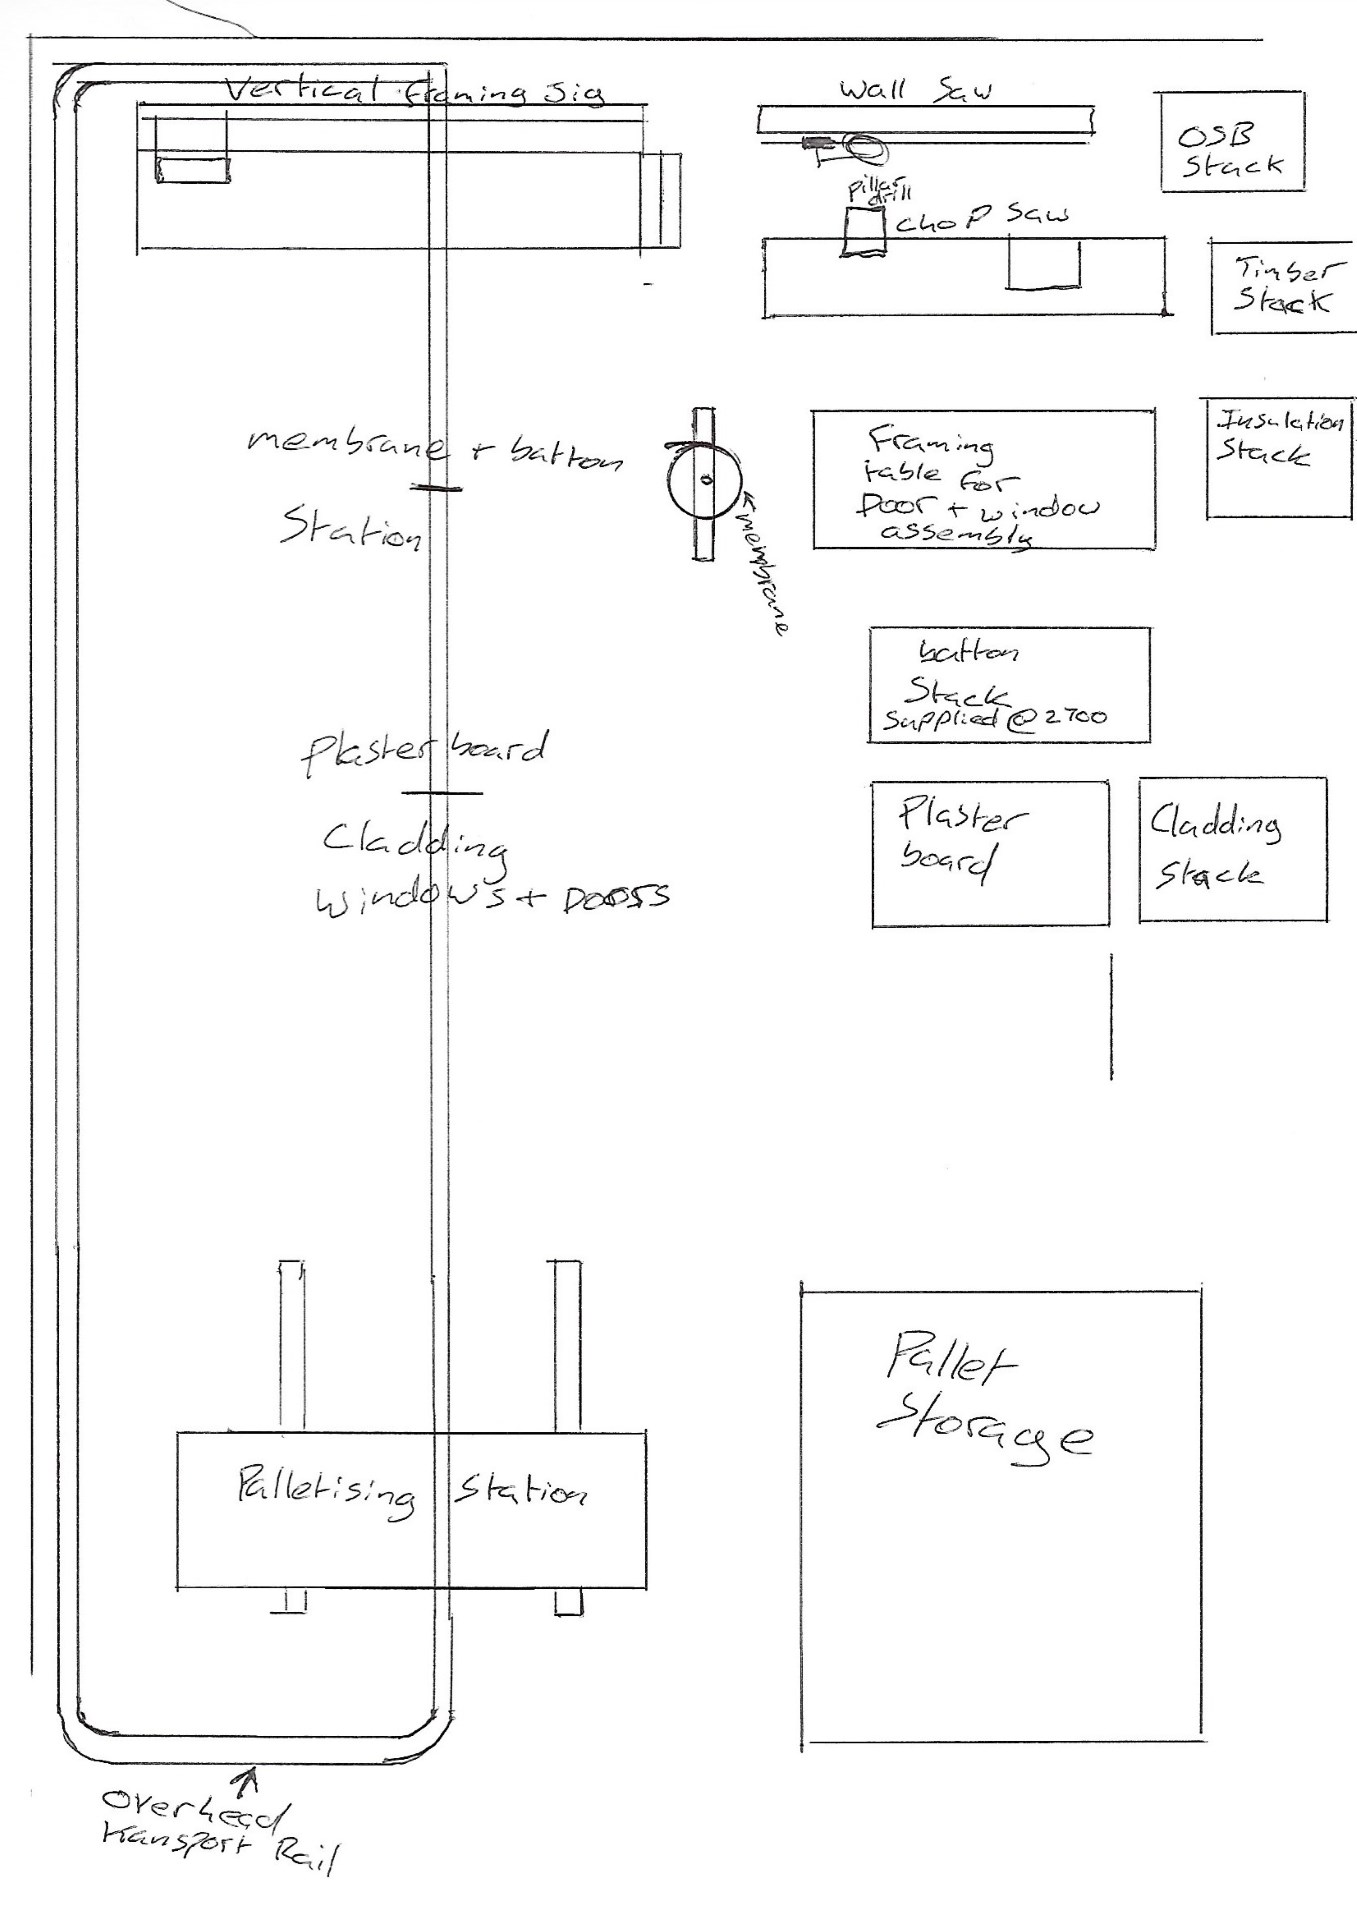 Vertical framing Jig
Wall Saw
OSB
Stack
pillar
drill
Chop Saw
Timber
Stack
membrane + batton
Station
membrane
Framing
table for
Door + window
assembly
Insulation
Stack
batton
Stack
Supplied @ 2700
Plaster board
Cladding
windows + Doors
Plaster
board
Cladding
Stack
Palletising Station
Pallet
Storage
Overhead
transport Rail